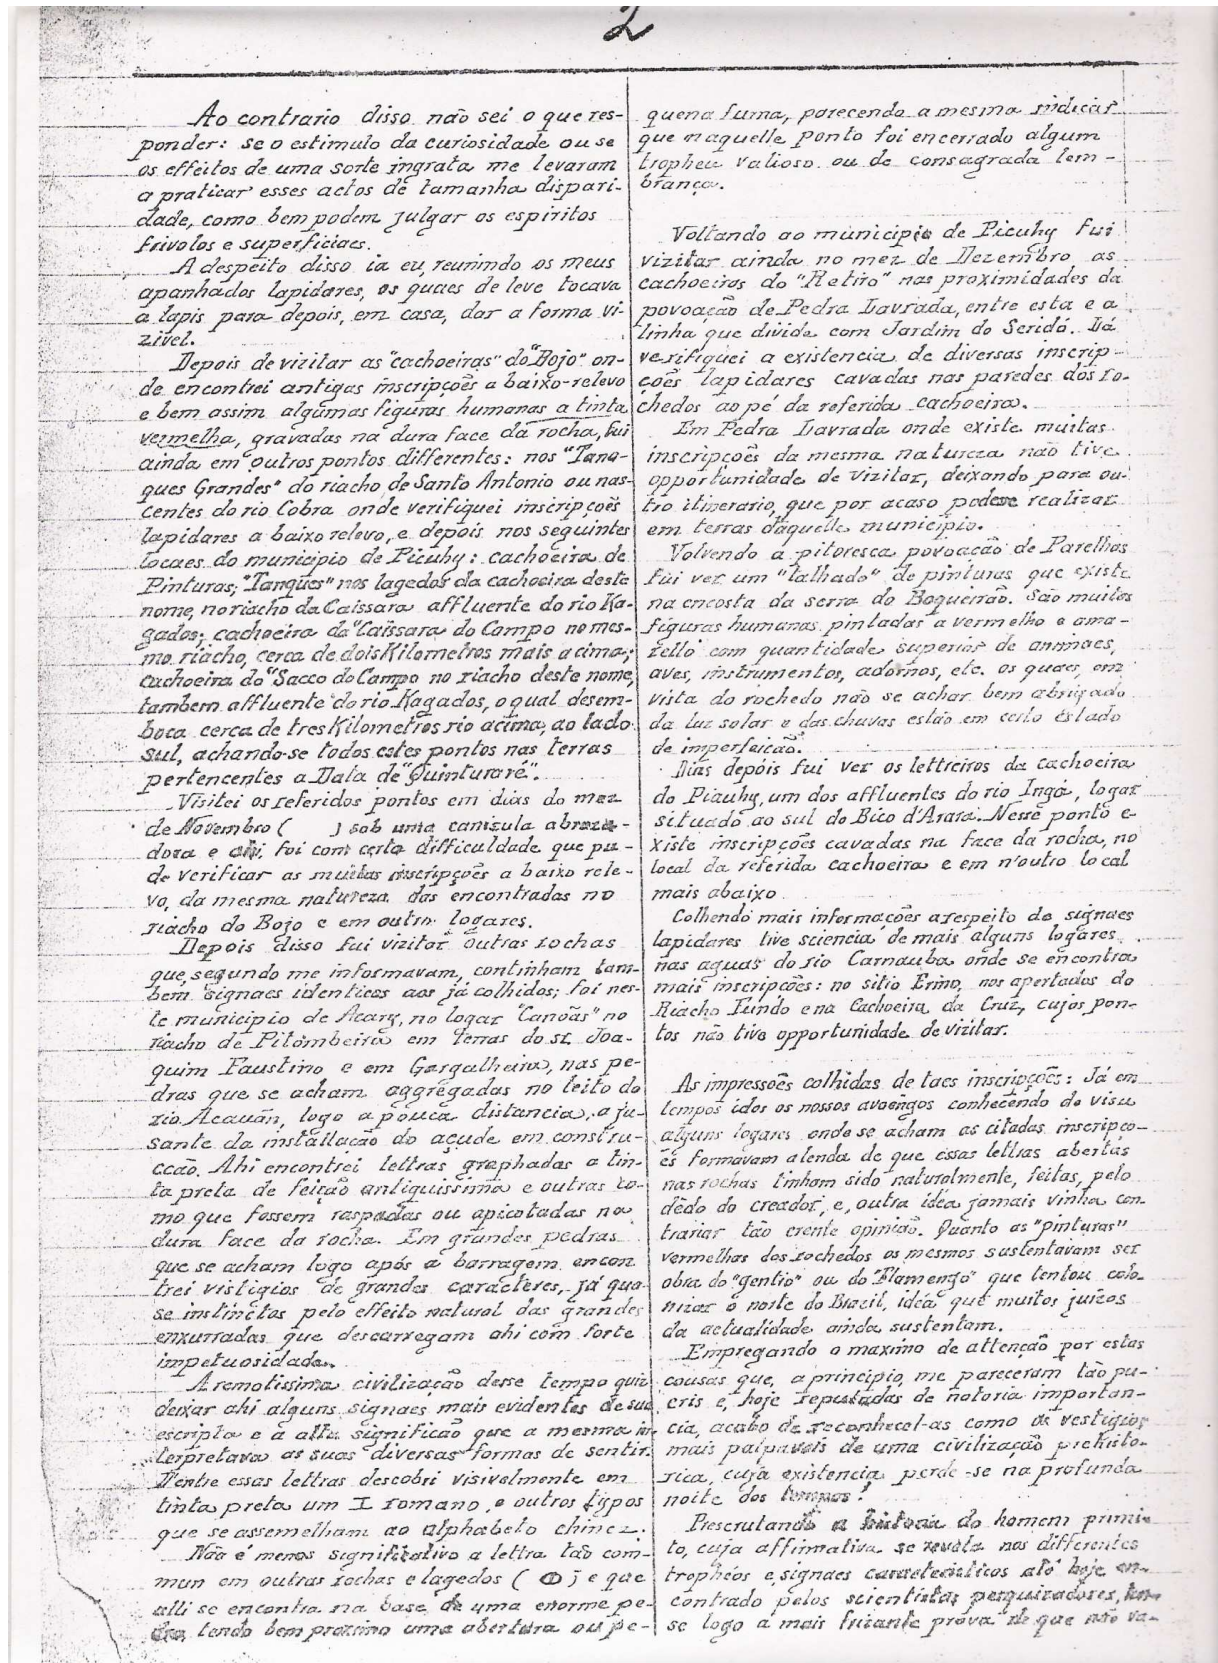 2
Ao contrario disso não sei o que res-
ponder: se o estimulo da curiosidade ou se
os effeitos de uma sorte ingrata me levaram
a praticar esses actos de tamanha dispari-
dade, como bem podem julgar os espiritos
frivolos e superficiaes.
A despeito disso ia eu, reunindo os meus
apanhados lapidares, os quaes de leve tocava
a lapis para depois, em casa, dar a forma vi-
zivel.
Depois de vizitar as "cachoeiras" do "Bojo" on-
de encontrei antigas inscripções a baixo-relevo
e bem assim algumas figuras humanas a tinta
vermelha, gravadas na dura face da rocha, fui
ainda em outros pontos differentes: nos "Tan-
ques Grandes" do riacho de Santo Antonio ou nas-
centes do rio Cobra onde verifiquei inscripções
lapidares a baixo relevo, e depois nos seguintes
locaes do municipio de Picuhy: cachoeira de
Pinturas; "Tanques" nos lagedos da cachoeira deste
nome, no riacho da Caissara affluente do rio Ka-
gados; cachoeira da "Caissara do Campo no mes-
mo riacho, cerca de dois Kilometros mais acima;
cachoeira do "Sacco do Campo no riacho deste nome,
tambem affluente do rio Kagados, o qual desem-
boca cerca de tres Kilometros rio acima, ao lado
sul, achando-se todos estes pontos nas terras
pertencentes a Data de "Quinturaré".
Visitei os referidos pontos em dias do mez
de Novembro ( ) sob uma canicula abraza-
dora e ahi foi com certa difficuldade que pu-
de verificar as muitas inscripções a baixo rele-
vo, da mesma natureza das encontradas no
riacho do Bojo e em outro logares.
Depois disso fui vizitar outras rochas
que, segundo me informavam, continham tam-
bem signaes identicos aos já colhidos; foi nes-
te municipio de Acary, no logar "Canôas" no
riacho de Pitombeira em terras do sr. Joa-
quim Faustino e em Gargalheira, nas pe-
dras que se acham aggregadas no leito do
rio Acauãn, logo a pouca distancia, a ju-
sante da installação do açude em constru-
cção. Ahi encontrei lettras graphadas a tin-
ta preta de feição antiquissima e outras co-
mo que fossem raspadas ou apicotadas na
dura face da rocha. Em grandes pedras
que se acham logo após a barragem encon
trei vistigios de grandes caracteres, já qua-
se instinctos pelo effeito natural das grandes
enxurradas que descarregam ahi com forte
impetuosidade.
A remotissima civilização desse tempo quiz
deixar ahi alguns signaes mais evidentes de sua
escripta e a alta significão que a mesma in
terpretava as suas diversas formas de sentir.
Dentre essas lettras descobri visivelmente em
tinta preta um I romano, e outros typos
que se assemelham ao alphabeto chinez.
Não é menos significativo a lettra tão com-
mun em outras rochas e lagedos ( ) e que
alli se encontra na base de uma enorme pe-
dra tendo bem proximo uma abertura ou pe-
quena furna, parecendo a mesma indicar
que naquelle ponto foi encerrado algum
tropheu valioso ou de consagrada lem-
brança.
Voltando ao municipio de Picuhy fui
vizitar ainda no mez de Dezembro as
cachoeiros do "Retiro" nas proximidades da
povoação de Pedra Lavrada, entre esta e a
linha que divide com Jardim do Seridó. Lá
verifiquei a existencia de diversas inscrip-
ções lapidares cavadas nas paredes dos ro-
chedos ao pé da referida cachoeira.
Em Pedra Lavrada onde existe muitas
inscripções da mesma natureza não tive
opportunidade de vizitar, deixando para ou-
tro itinerario, que por acaso podesse realizar
em terras d'aquelle municipio.
Volvendo a pitoresca povoação de Parelhas
fui ver um "talhado" de pinturas que existe
na encosta da serra do Boqueirão. São muitos
figuras humanas pintadas a vermelho e ama-
rello com quantidade superior de animaes,
aves, instrumentos, adornos, etc. os quaes, em
vista do rochedo não se achar bem abrigado
da luz solar e das chuvas estão em certo estado
de imperfeição.
Dias depois fui ver os lettreiros da cachoeira
do Picuhy, um dos affluentes do rio Ingá, logar
situado ao sul do Bico d'Arara. Nesse ponto e-
xiste inscripções cavadas na face da rocha, no
local da referida cachoeira e em n'outro local
mais abaixo
Colhendo mais informações a respeito de signaes
lapidares tive sciencia de mais alguns logares
nas aguas do rio Carnauba onde se encontra
mais inscripções: no sitio Ermo, nos apertados do
Riacho Fundo e na Cachoeira da Cruz, cujos pon-
tos não tive opportunidade de vizitar.
As impressões colhidas de taes inscripções: Já em
tempos idos os nossos avoengos conhecendo de visu
alguns logares onde se acham as citadas inscripço-
es formavam a lenda de que essas lettras abertas
nas rochas tinham sido naturalmente, feitas, pelo
dêdo do creador, e, outra idéa jamais vinha con-
trariar tão crente opinião. Quanto as "pinturas"
vermelhas dos rochedos os mesmos sustentavam ser
obra do "gentio" ou do "Flamengo" que tentou colo-
nizar o norte do Brazil, idéa que muitos juizos
da actualidade ainda sustentam.
Empregando o maximo de attenção por estas
cousas que, a principio, me pareceram tão pu-
eris e, hoje reputadas de notoria importan-
cia, acabo de reconhecel-as como os vestigios
mais palpaveis de uma civilização prehisto-
rica, cuja existencia perde-se na profunda
noite dos tempos!
Prescrutando a historia do homem primi-
to, cuja affirmativa se revela nos differentes
tropheos e signaes caracteristicos até hoje en-
contrado pelos scientistas pesquizadores, tem-
se logo a mais frizante prova de que não va-